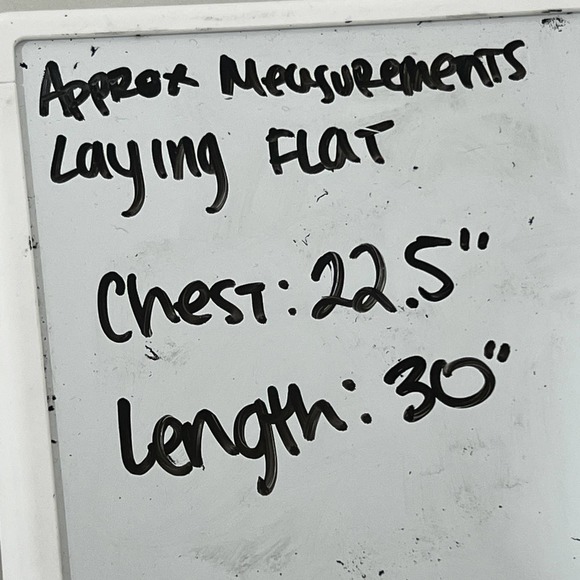 Approx Measurements
Laying FLaT
Chest: 22.5"
Length: 30"